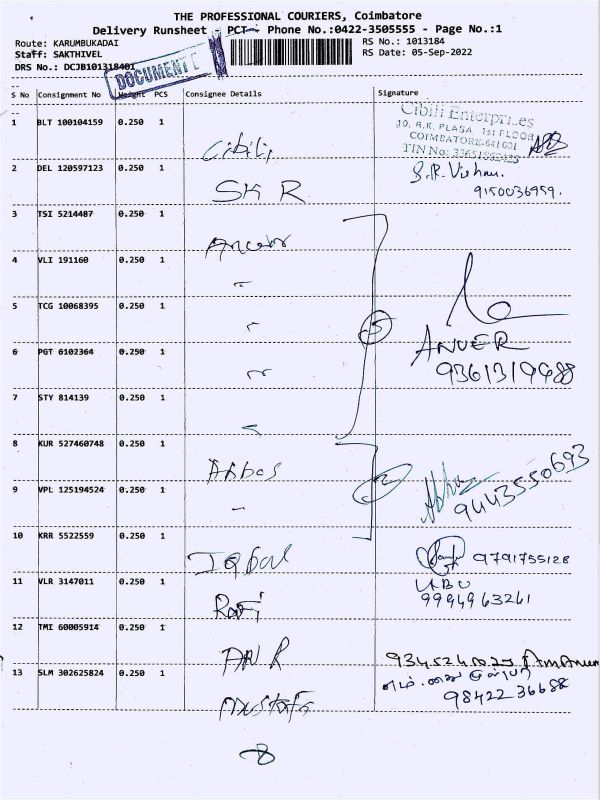 THE PROFESSIONAL COURIERS, Coimbatore
Delivery Runsheet PCT Phone No.:0422-3505555 - Page No.:1
Route: KARUMBUKADAI
RS No.: 1013184
Staff: SAKTHIVEL
RS Date: 05-Sep-2022
DRS No.: DCJB101318401
DOCUMENT
S No Consignment No Weight PCS Consignee Details Signature
1 BLT 100104159 0.250 1 Cibili
Cibili Enterprises
30, R.K. PLASA, 1st FLOOR
COIMBATORE-641 001
TIN No:
2 DEL 120597123 0.250 1 SKR
S.R. Vishnu.
9150036959.
3 TSI 5214487 0.250 1 Anver
4 VLI 191160 0.250 1 "
5 TCG 10068395 0.250 1 "
5
ANVER
6 PGT 6102364 0.250 1 "
9361319988
7 STY 814139 0.250 1 "
8 KUR 527460748 0.250 1 Abbas
9 VPL 125194524 0.250 1 "
2
9443550693
10 KRR 5522559 0.250 1 IQbal
9791755128
11 VLR 3147011 0.250 1 Rafi
9994963261
12 TMI 60005914 0.250 1 AN R
13 SLM 302625824 0.250 1 Mustafa
98422 36688